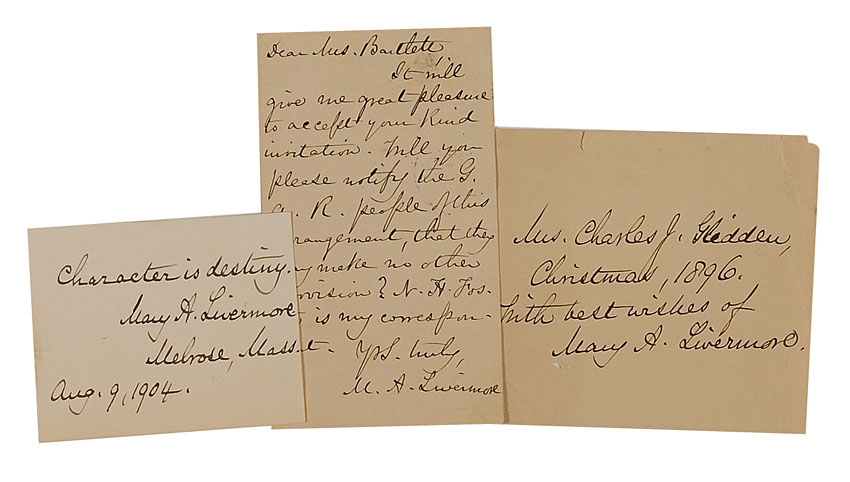 Character is destiny.
Mary A. Livermore
Melrose, Mass.
Aug. 9, 1904.
Dear Mrs. Bartlett,
It will
give me great pleasure
to accept your kind
invitation. Will you
please notify the G.
A. R. people of this
rangement, that they
y make no other
ovision? N. H. Fos-
is my correspon-
t. Yrs. truly,
M. A. Livermore
Mrs. Charles J. Glidden,
Christmas, 1896.
With best wishes of
Mary A. Livermore.